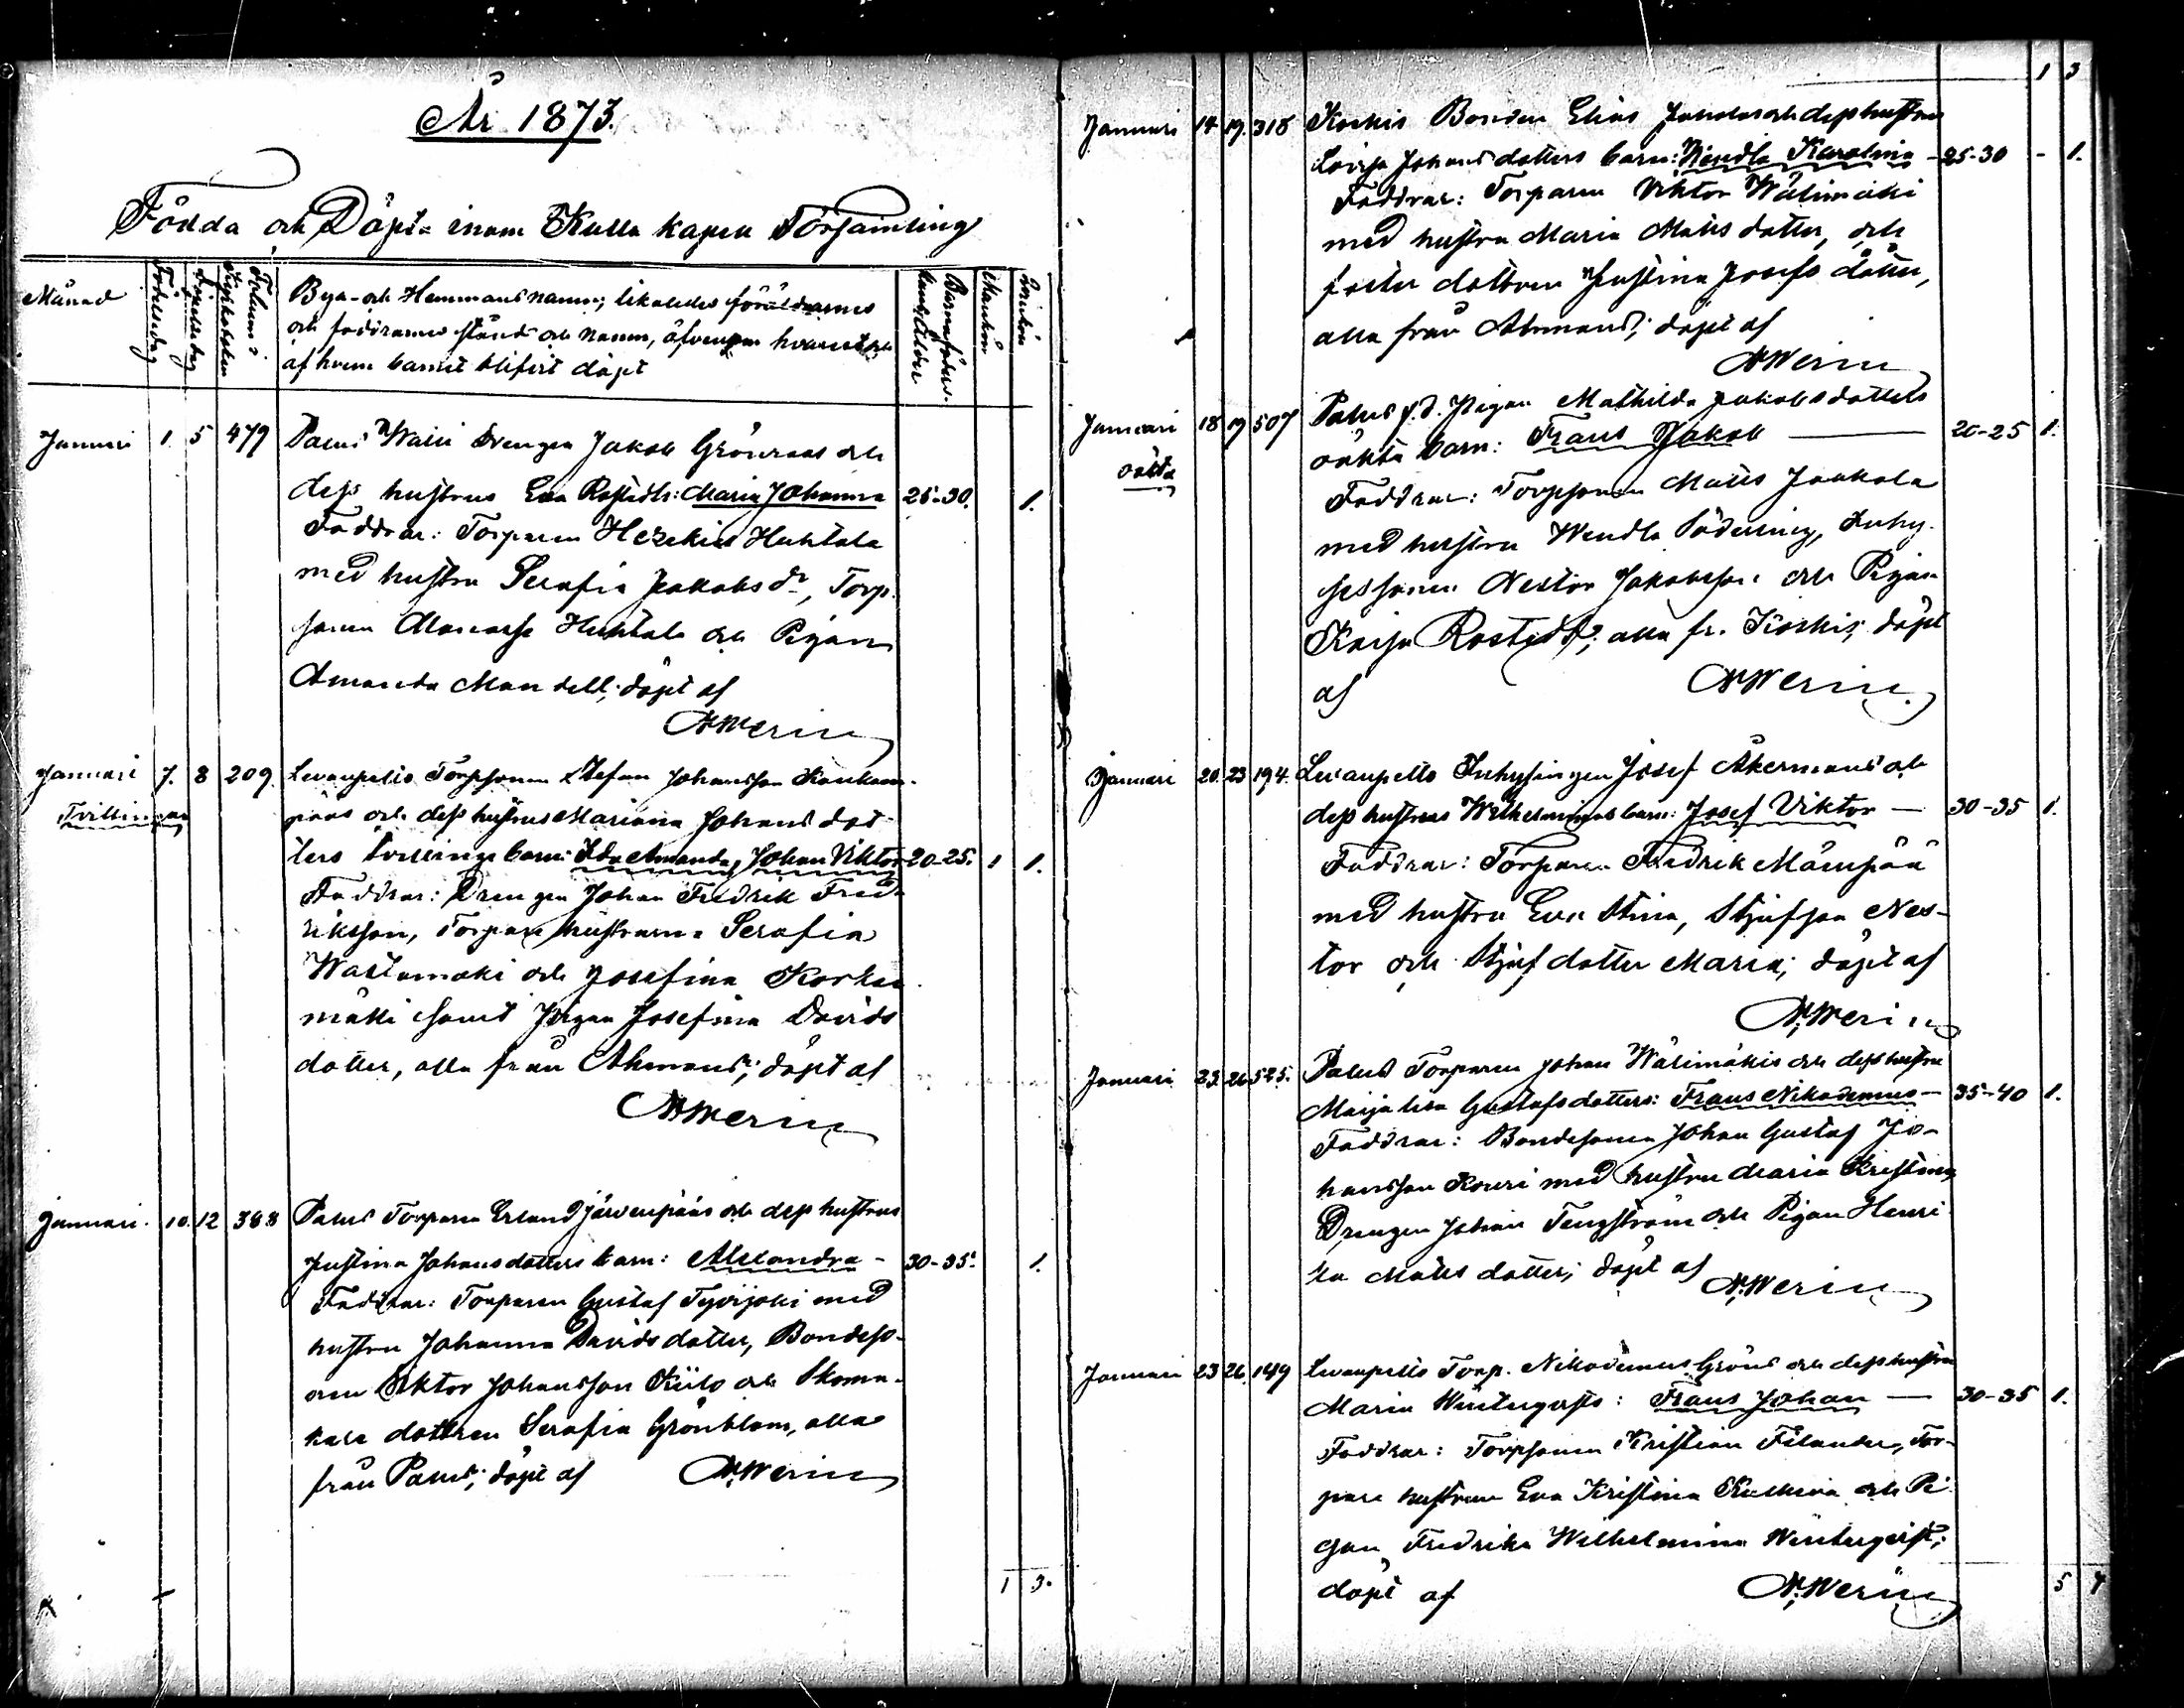 År 1873.
Födda och Döpte inom Kulla kapell Församling
Månad
Födelsedag
Döpelsedag
Folium i Kyrkoboken
Bya- och Hemmans namn; likaledes föräldrarnes
och faddrarnes stånd och namn, äfvensom
af hvem barnet blifvit döpt
Barnaföderskans ålder
Mankön
Qvinkön
Januari 1. 5 479 Palus Drengen Jakob Grönroos och
dess hustrus Eva Rostedts: Maria Johanna 25-30. 1.
Faddrar: Torparen Hezekiel Huhtala
med hustru Serafia Jakobsdr, Torp-
sonen Manasse Huhtala och Pigan
Amanda Mandell; döpt af
A. Werin
Januari 7. 8 209. Levanpelto Torpsonen Stefan Johansson
Tvillingar
pääs och dess hustrus Mariana Johansdot-
ters tvillinge barn: Ida Amanda, Johan Viktor 20-25. 1 1.
Faddrar: Drengen Johan Fredrik Fred-
riksson, Torpare hustrurna Serafia
Wastamäki och Josefina Korkea-
mäki samt Pigan Josefina Davids
dotter, alla från Ahmaus; döpt af
A. Werin
Januari. 10. 12 388 Palus Torparen Erland Järvenpääs och dess hustrus
Justina Johansdotters barn: Alexandra - 30-35. 1.
Faddrar: Torparen Gustaf Tyvijoki med
hustru Johanna Davidsdotter, Bondeso-
nen Viktor Johansson Kiilo och Skoma-
kare dottren Serafia Grönblom, alla
från Palus; döpt af A. Werin
1 3.
1 3
Januari 14 19. 318 Koskis Bonden Elias Jakolas och dess hustrus
Lovisa Johansdotters barn: Wendla Karolina - 25-30 - 1.
Faddrar: Torparen Viktor Wälimäki
med hustru Maria Matts dotter, och
foster dottren Justina Josefs dotter,
alla från Ahmaus; döpt af
A. Werin
Januari 18 19 507 Palus f.d. Pigan Mathilda Jakobsdotters
oäkta
oäkta barn: Frans Jakob — 20-25 1.
Faddrar: Torpsonen Matts Jaakola
med hustru Wendla Södering, Inhy-
sessonen Nestor Jakobsson och Pigan
Kaisa Rostedt; alla fr. Koskis; döpt
af A. Werin.
Januari 20. 23 194. Levanpelto Inhysingen Josef Åkermans och
dess hustrus Wilhelminas barn: Josef Viktor — 30-35 1.
Faddrar: Torparen Fredrik Mäenpää
med hustru Eva Stina, Stjufson Nes-
tor och Stjufdotter Maria; döpt af
A. Werin
Januari 23. 26 525. Palus Torparen Johan Wälimäkis och dess hustru
Maija Lisa Gustafsdotters: Frans Nikodemus — 35-40 1.
Faddrar: Bondesonen Johan Gustaf Jo-
hansson Kouri med hustru Maria Kristina,
Drengen Johan Tengström och Pigan Henri-
ka Matts dotter; döpt af A. Werin
Januari 23 26. 149 Levanpelto Torp. Nikodemus Gröns och dess hustru
Maria Wintergists: Frans Johan — 30-35 1.
Faddrar: Torpsonen Kristian Filander, Tor-
pare hustrun Eva Kristina och Pi-
gan Fredrika Wilhelmina Wintergist;
döpt af A. Werin
5 4